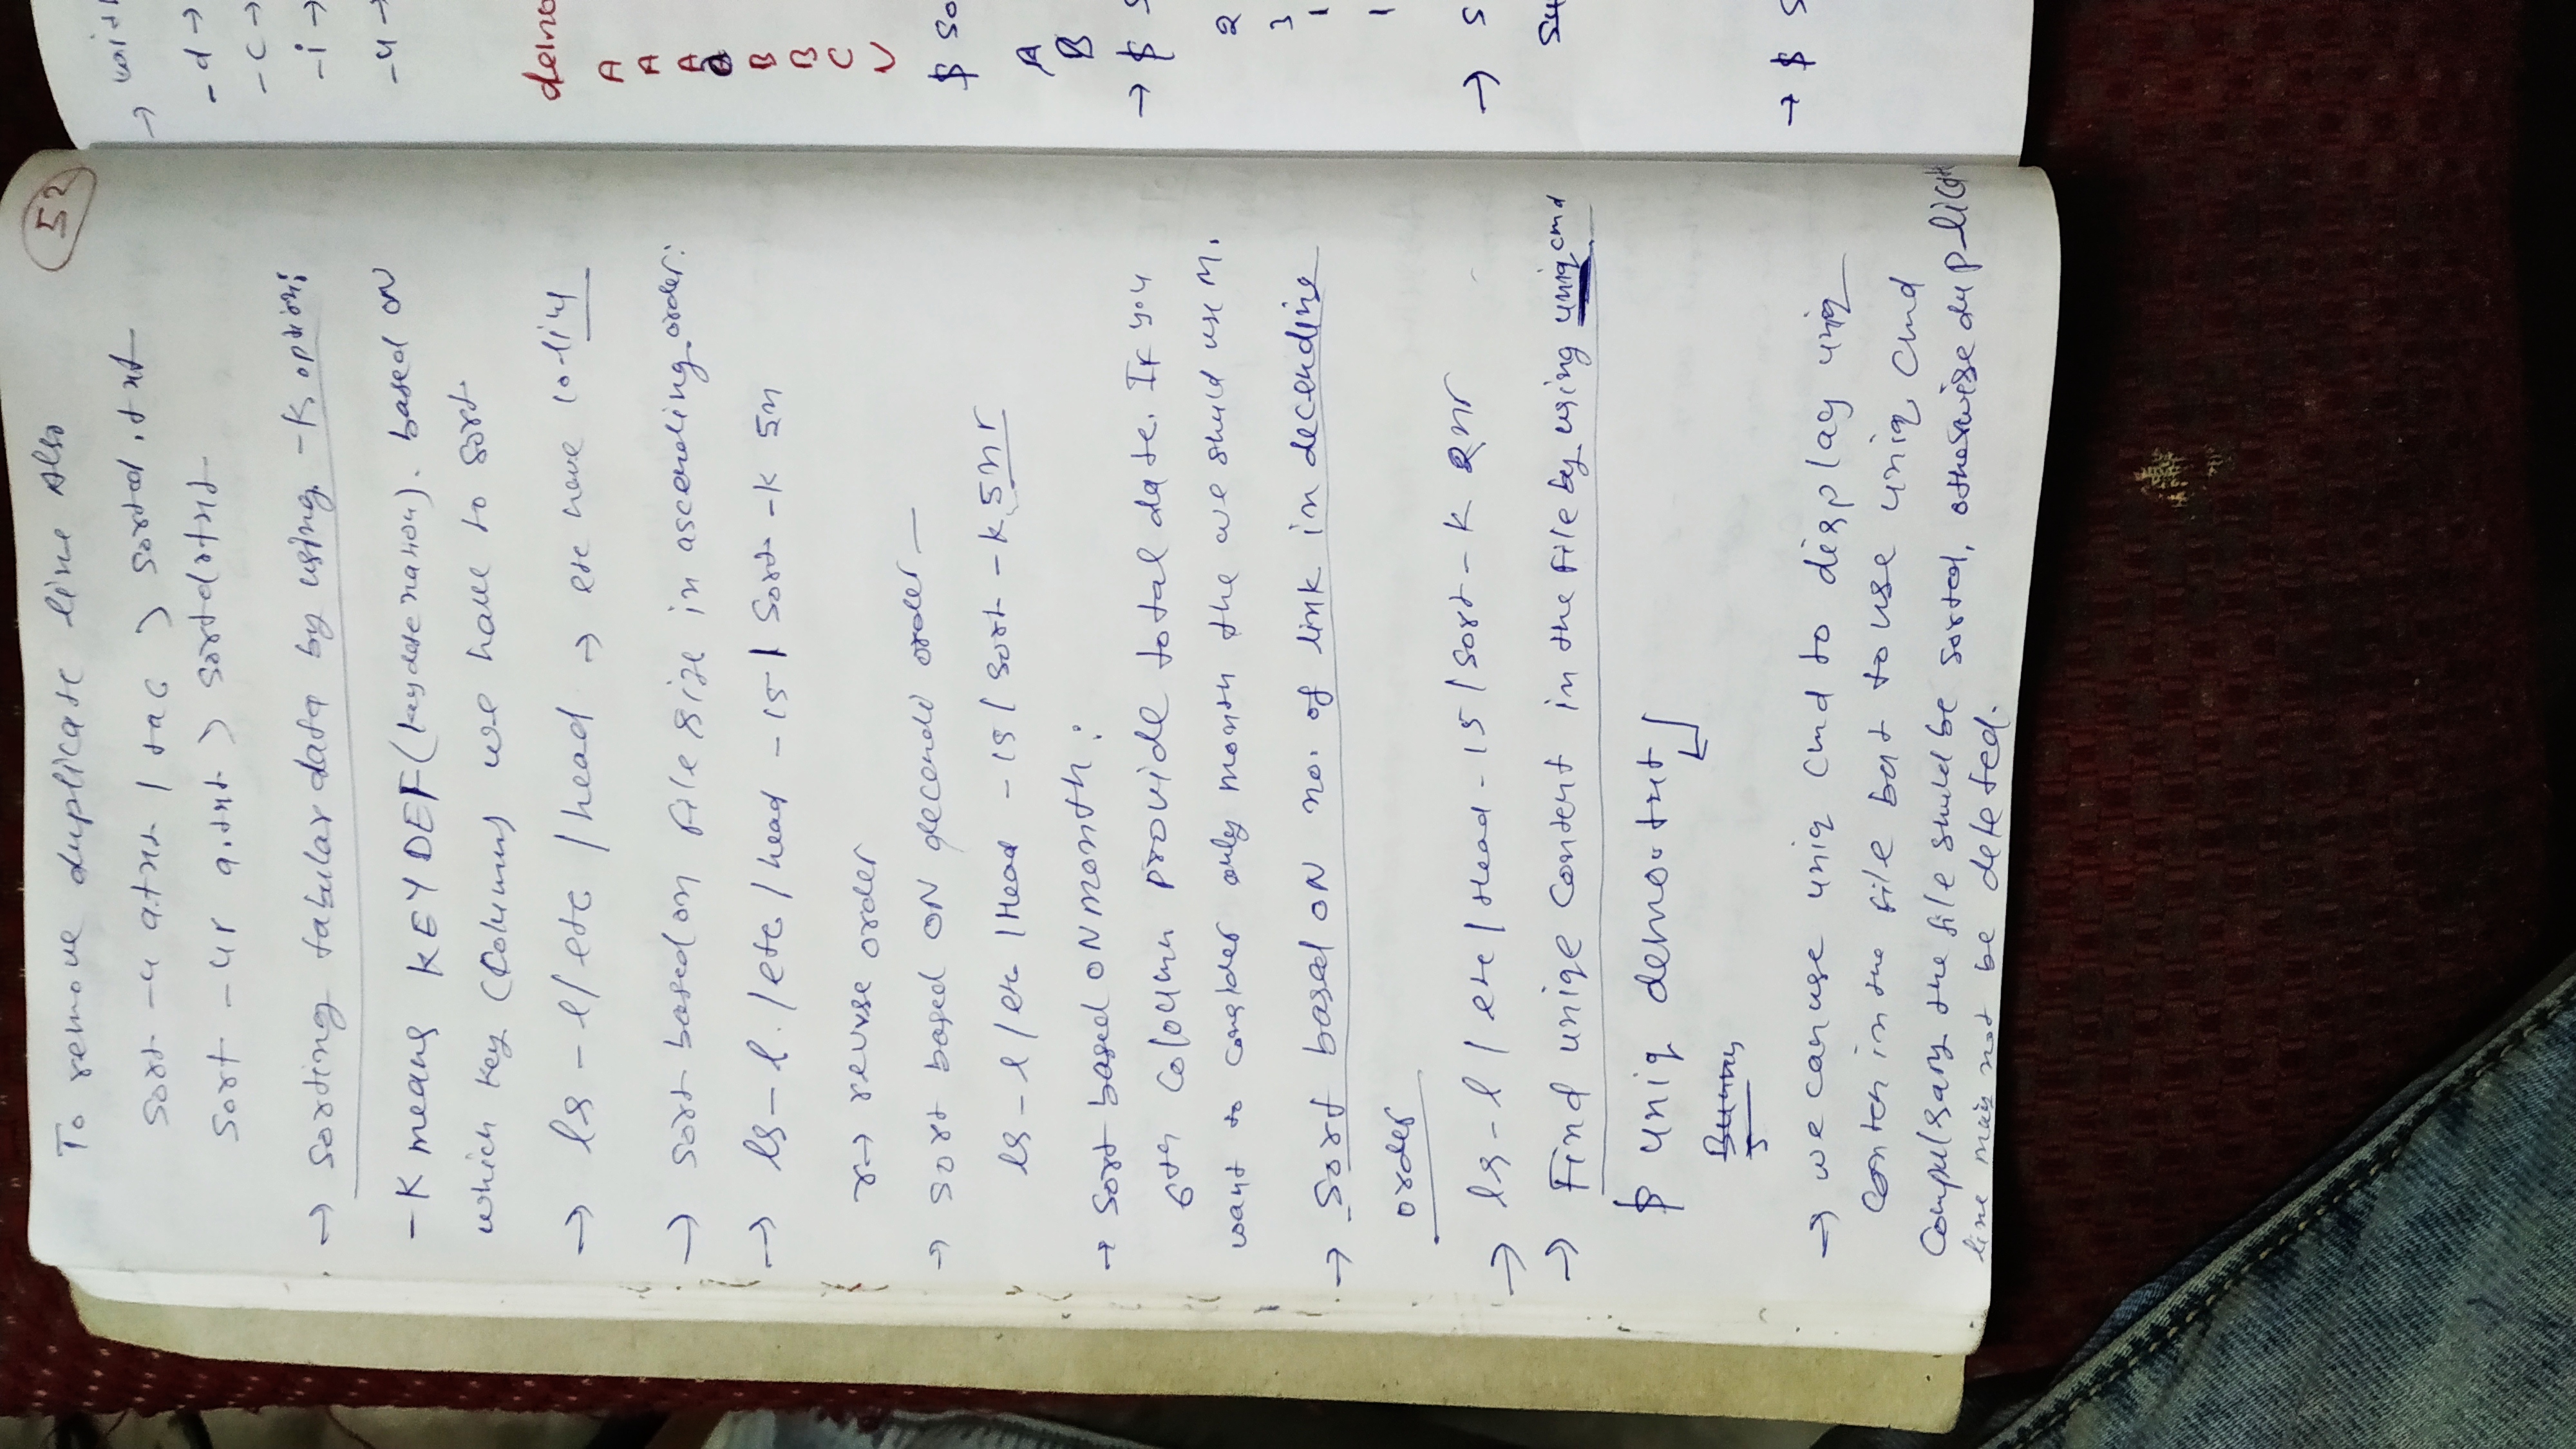 52
To remove duplicate line Also
sort -u a.txt | tac > sorted.txt
sort -ur a.txt > sortd.txt
→ Sorting tabular data by using -k option:
-K means KEYDEF ( ). based on
which key (Column) we have to sort
→ ls -l /etc | head → ere have 10 line
→ sort based on file size in ascending order:
→ ls -l /etc | head -15 | sort -k 5n
r → reverse order
→ sort based ON decendi order —
ls -l /etc | Head -15 | sort -k 5nr
→ sort based ON month:
6th Coloumn provide total date. If you
want to consider only month the we shuld use M.
→ Sort based ON no. of link in decendine
order
→ ls -l /etc | Head -15 | sort -k 2nr
→ Find uniqe Content in the file by using uniq cmd
$ uniq demo.txt
→ we can use uniq cmd to display uniq
Conten in the file but to use uniq cmd
Compulsary the file shuld be sorted, otherwise duplicate
line may not be deleted.
-d →
-c →
-i →
-u →
demo
A
A
A
B
B
C
$ so
A
B
→ $ s
2
3
1
1
→ s
→ $ s